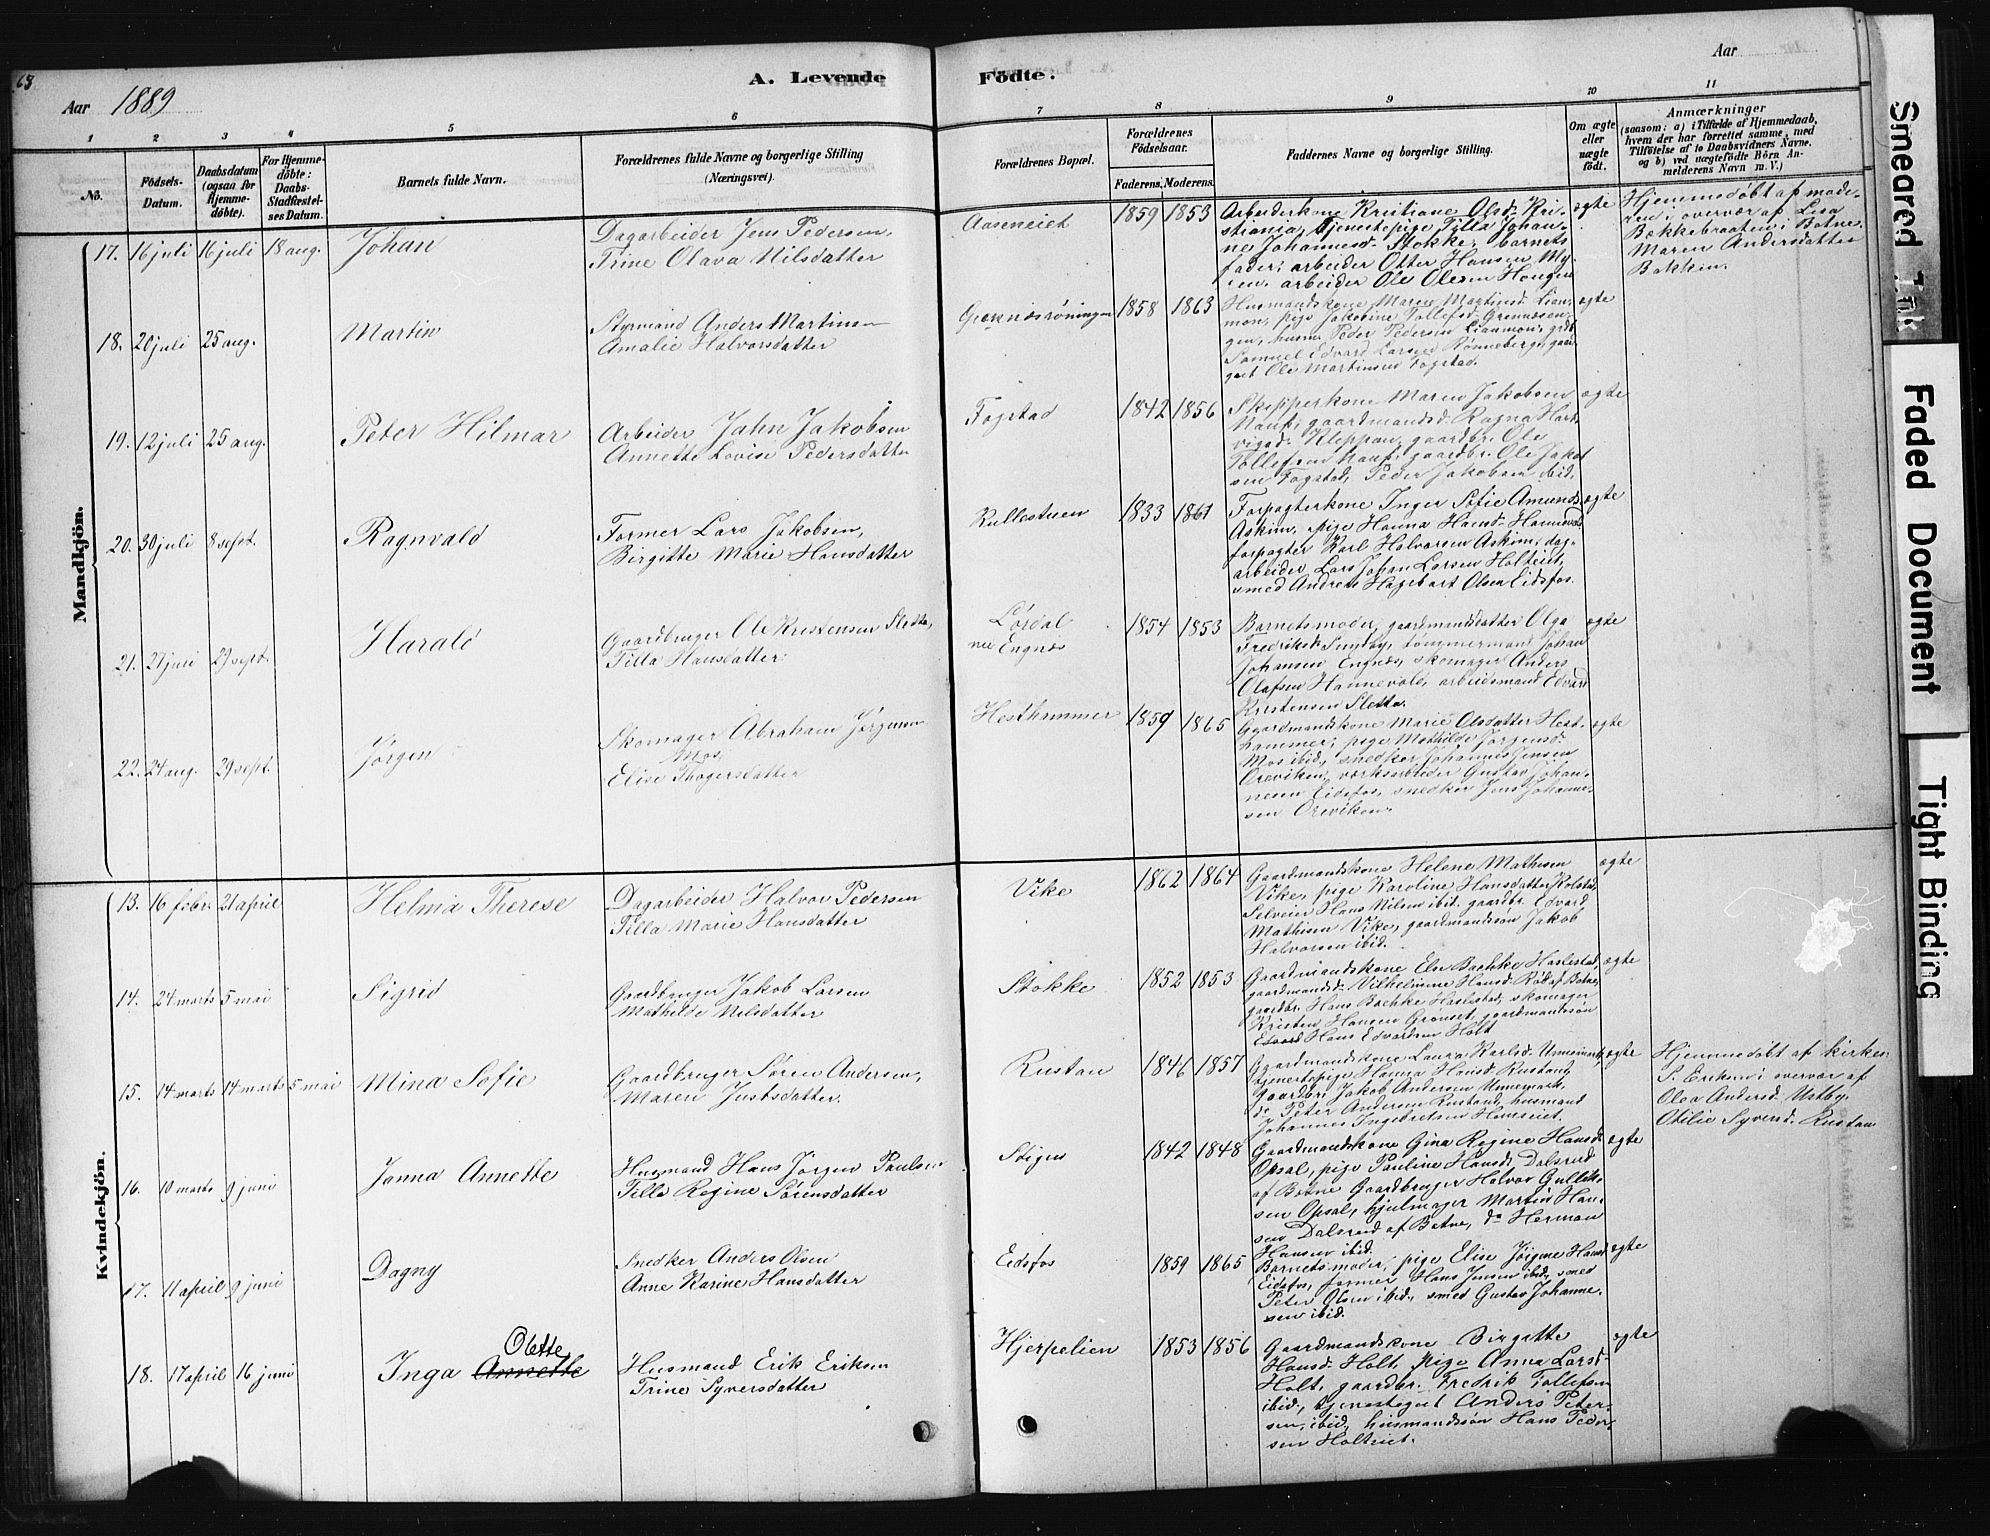 68
Aar 1889
A. Levende
Födte.
Aar
1
2
3
4
5
6
7
8
9
10
11
No.
Födsels-Datum.
Daabsdatum (ogsaa for Hjemme-döbte).
For Hjemme-döbte: Daabs-Stadfæstel-ses Datum.
Barnets fulde Navn.
Forældrenes fulde Navne og borgerlige Stilling
(Næringsvei).
Forældrenes Bopæl.
Forældrenes Födselsaar.
Faderens.
Moderens.
Faddernes Navne og borgerlige Stilling.
Om ægte eller uægte födt.
Anmærkninger
(saasom: a) i Tilfælde af Hjemmedaab,
hvem der har forrettet samme, med
Tilföielse af to Daabsvidners Navne.
og b) ved uægtefödte Börn An-
melderens Navn m. V.)
Mandkjön.
17. 16 juli 16 juli 18 aug. Johan
Dagarbeider Jens Pedersen,
Trine Olava Nilsdatter
Aaseneiet 1859 1853
Arbeiderkone Kristiane Olsd. Kri-
stiania, tjenestepige Tilla Johan-
ne Johannesd. Stokke, barnets
fader, arbeider Otter Hansen My-
ren, arbeider Ole Olesen Haugen
ægte
Hjemmedøbt af mode-
ren i overvær af Lisa
Bakkebraaten i Botne
Maren Andersdatter
Bakken.
18. 20 juli 25 aug. Martin
Styrmand Anders Martinsen
Amalie Halvorsdatter
Grøsnæsrøningen 1858 1863
Husmandskone Maren Martinsd. Lian-
mon, pige Jakobine Tollefsd.
gen, husm. Peder Pedersen Lianmon, grdbr
Samuel Edvard Larsen Rønneberg, gaar-
gut Ole Martinsen Fogstad.
ægte
19. 12 juli 25 aug. Peter Hilmar
Arbeider Jahn Jakobsen
Annette Lovise Pedersdatter
Fogstad 1842 1856
Skipperkone Maren Jakobsen
Nauf, gaardmandsd. Ragna Hart-
vigsd. Kleppan, gaardbr. Ole
Tollefsen Nauf, gaardbr. Ole Jakob
sen Fogstad, Peder Jakobsen ibid.
ægte
20. 30 juli 8 sept. Ragnvald
Former Lars Jakobsen,
Birgitte Marie Hansdatter
Rullestuen 1833 1861
Forpagterkone Inger Sofie Amunds.
Askim, pige Hanna Hansd. Hannevold
forpagter Karl Halvorsen Askim, dag-
arbeider Lars Johan Larsen Holteiet,
smed Andreas Hagebart Olsen Eidsfos.
ægte
21. 27 juni 29 sept. Harald
Gaardbruger Ole Kristensen Sletta,
Tilla Hansdatter
Lørdal
nu Engnæs
1854 1853
Barnets moder, gaardmandsdatter Olga
Fredriksd. Sundby, tømmermand Johan
Johansen Engnæs, skomager Anders
Olafsen Hannevold, arbeidsmand Edvard
Kristensen Sletta.
ægte
22. 24 aug. 29 sept. Jørgen
Skomager Abraham Jørgensen
Mos,
Elise Thogersdatter
Hesthammer 1859 1865
Gaardmandskone Marie Olsdatter Hest-
hammer, pige Mathilde Jørgensd.
Mos ibid., snedker Johannes Jensen
Oreviken, værksarbeider Gustav Johan-
nesen Eidsfos, snedker Jens Johanne-
sen Oreviken.
ægte
Kvindekjön.
13. 16 febr. 21 april Helma Therese
Dagarbeider Halvor Pedersen
Tilla Marie Hansdatter
Vike 1862 1864
Gaardmandskone Helene Mathisen
Vike, pige Karoline Hansdatter Rolstad,
Selveier Hans Nilsen ibid. gaardbr. Edvard
Mathisen Vike, gaardmandssøn Jakob
Halvorsen ibid.
ægte
14. 24 marts 5 mai Sigrid
Gaardbruger Jakob Larsen
Mathilde Nilsdatter
Stokke 1852 1853
Gaardmandskone Elen Bachke Haslestad,
gaardmandsd. Vilhelmine Hansd. Rød af Botne,
gaardbr. Hans Bachke Haslestad, skomager
Kristen Hansen Grønset, gaardmandssøn
Edvard Hans Edvardsen Holt
ægte
15. 14 marts 14 marts 5 mai Mina Sofie
Gaardbruger Søren Andersen,
Maren Justsdatter.
Rustan 1846 1857
Gaardmandskone Laura Karlsd. Unnemark,
tjenestepige Hanna Hansd. Rustand,
gaardbr. Jakob Andersen Unnemark,
do Peter Andersen Rustand, husmand
Johannes Ingebretsen Hemseiet.
ægte
Hjemmedøbt af kirkes.
S. Eriksen i overvær af
Olea Andersd. Ustby,
Otilie Syversd. Rustan
16. 10 marts 9 juni Janna Annette
Husmand Hans Jørgen Paulsen
Tilla Regine Sørensdatter
Stigen 1842 1848
Gaardmandskone Gina Regine Hansd.
Opsal, pige Pauline Hansd. Dalsrud
af Botne Gaardbruger Halvor Gullik-
sen Opsal, hjulmager Martin Han-
sen Dalsrud af Botne, do Herman
Hansen ibid.
ægte
17. 11 april 9 juni Dagny
Snedker Anders Olsen
Anne Karine Hansdatter
Eidsfos 1859 1865
Barnets moder, pige Elise Jørgine Hansd.
Eidsfos, former Hans Jensen ibid., smed
Peter Olsen ibid., smed Gustav Johanne-
sen ibid.
ægte
18. 17 april 16 juni Inga Annette
Olette
Husmand Erik Eriksen
Trine Syversdatter
Hjerpelien 1853 1856
Gaardmandskone Birgitte
Hansd. Holt, pige Anna Larsd.
Holt, gaardbr. Fredrik Tollefsen
ibid., tjenestegut Anders Peter-
sen, ibid., husmandssøn Hans Peder-
sen Holteiet.
ægte
Smeared Ink
Faded Document
Tight Binding